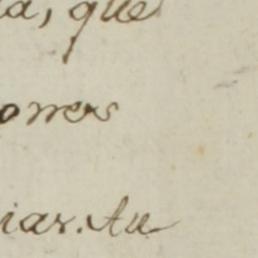 a, que
orrer
iar. Au